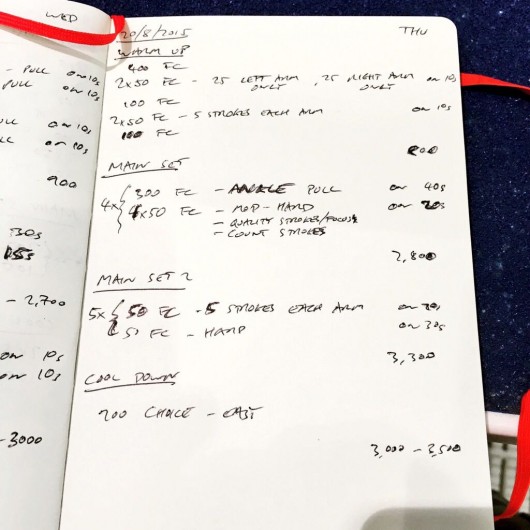 WED
- PULL on 10s
PULL on 10s
on 10s
on 10s
900
30s
15s
- 2,700
on 10s
on 10s
- 3000
20/8/2015 THU
WARM UP
400 FC
2x50 FC - 25 LEFT ARM ONLY, 25 RIGHT ARM ONLY on 10s
100 FC
2x50 FC - 5 STROKES EACH ARM on 10s
100 FC
800
MAIN SET
4x { 300 FC - PULL on 40s
4x50 FC - MOD-HARD on 20s
- QUALITY STROKES/FOCUS
- COUNT STROKES
2,800
MAIN SET 2
5x { 50 FC - 5 STROKES EACH ARM on 20s
50 FC - HARD on 30s
3,300
COOL DOWN
200 CHOICE - EASY
3,000 - 3,500